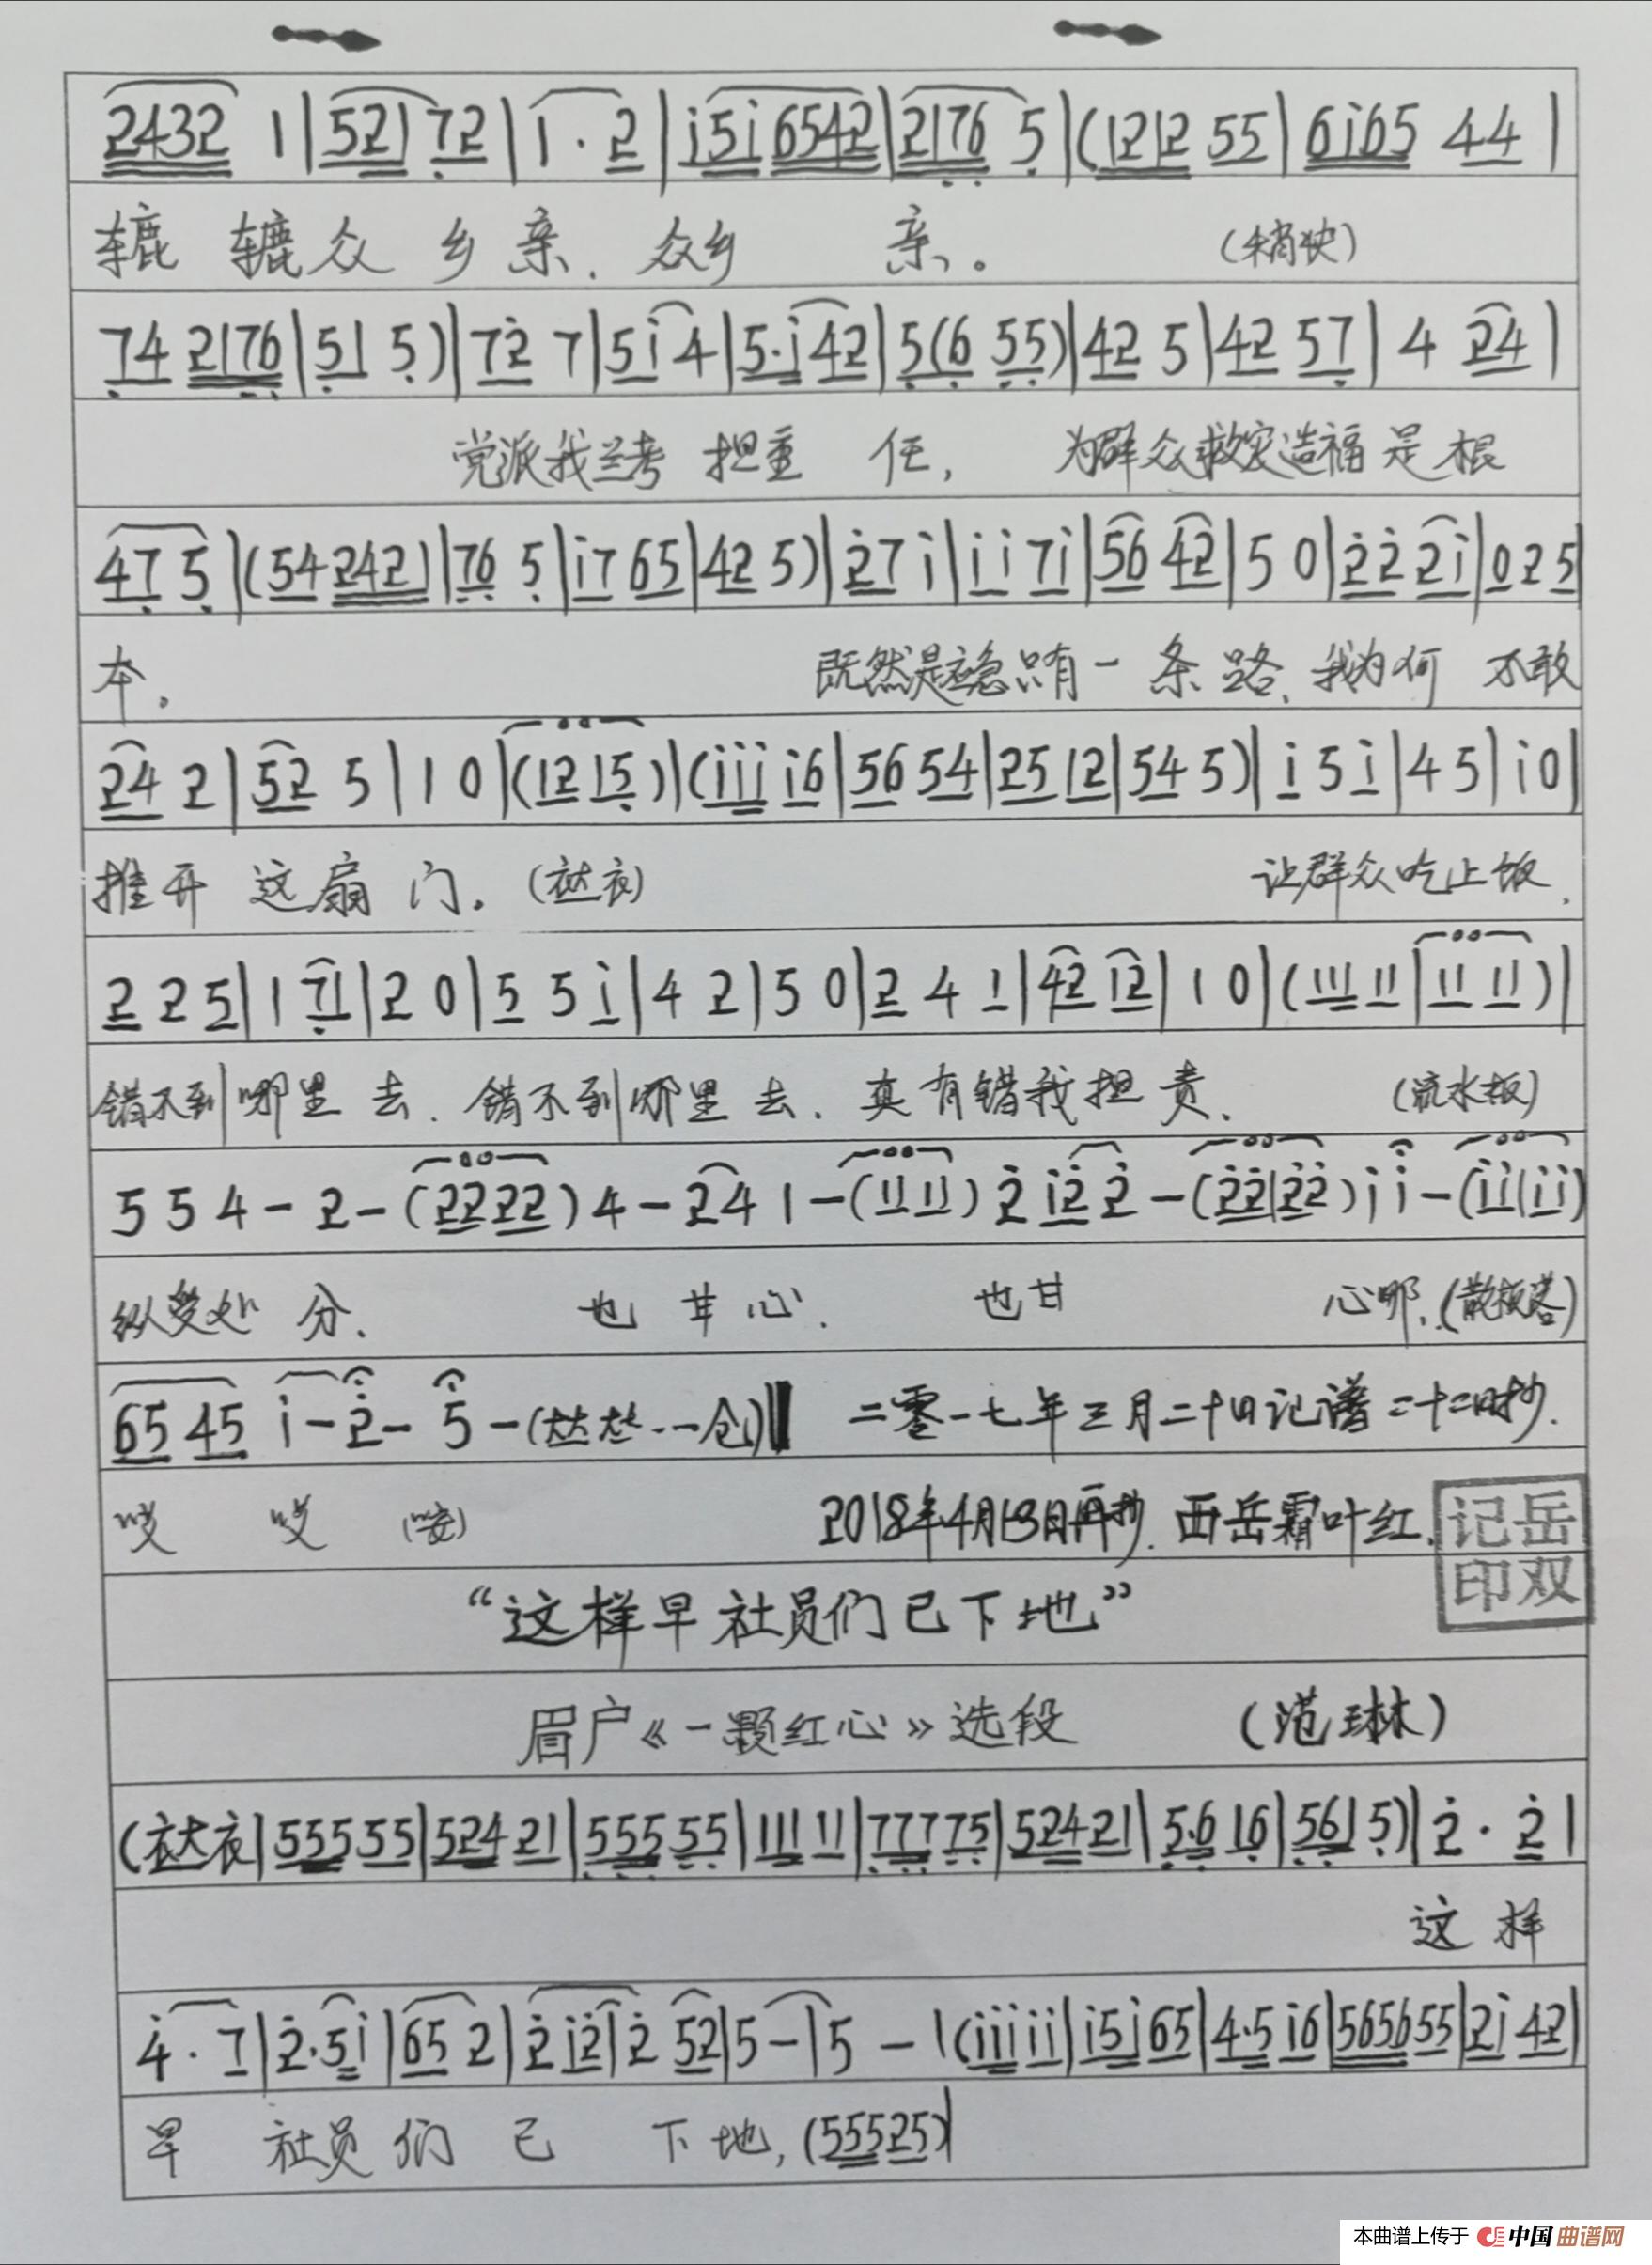 2432 1|521 72|1·2|i5i 6542|2176 5|(1212 55|6i65 44|
辘 辘众 乡亲、众乡 亲。 (稍快)
74 2176|51 5)|72 7|5i 4|5·i 42|5(6 55)|42 5|42 57|4 24|
党派我兰考 担重 任, 为群众救灾造福是根
47 5|(54 2421|76 5|i7 65|42 5)|27 i|ii 7i|56 42|5 0|22 2i|0 2 5|
本。 既然是应急只有一条路、我为何 不敢
24 2|52 5|1 0|(12 15)|(iii i6|56 54|25 12|54 5)|i 5 i|4 5|i 0|
推开 这扇 门。(衣大衣) 让群众吃上饭.
2 2 5|1 71|2 0|5 5 i|4 2|5 0|2 4 1|42 12|1 0|(111 11|11 11)|
错不到|哪里 去、错不到|哪里 去、真有错我担责. (流水板)
5 5 4-2-(22 22)4-24 1-(11 11)2 i2 2-(22|22)i i-(ii|ii)
纵受处 分、 也 甘心. 也甘 心哪.(散板落)
65 45 i-2-5-(大大大…一仓)‖ 二零一七年三月二十四记谱二十二日抄.
哎 哎 (安) 2018年4月13日再抄. 西岳霜叶红.
记岳
印双
“这样早社员们已下地”
眉户《一颗红心》选段 (范琳)
(衣大衣|555 55|524 21|555 55|111 11|777 75|524 21|5·6 16|561 5)|2·2|
这 样
4·7|2·5i|65 2|2 i2|2 52|5-|5-|(iii ii|i5i 65|4·5 i6|5656 55|2i 42|
早 社员们 已 下地,(55525)|
本曲谱上传于 中国曲谱网